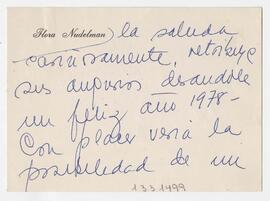 Flora Nudelman la saluda
cariñosamente, retribuye
sus augurios deseandole
un feliz año 1978 -
Con placer vería la
posibilidad de un
1331499